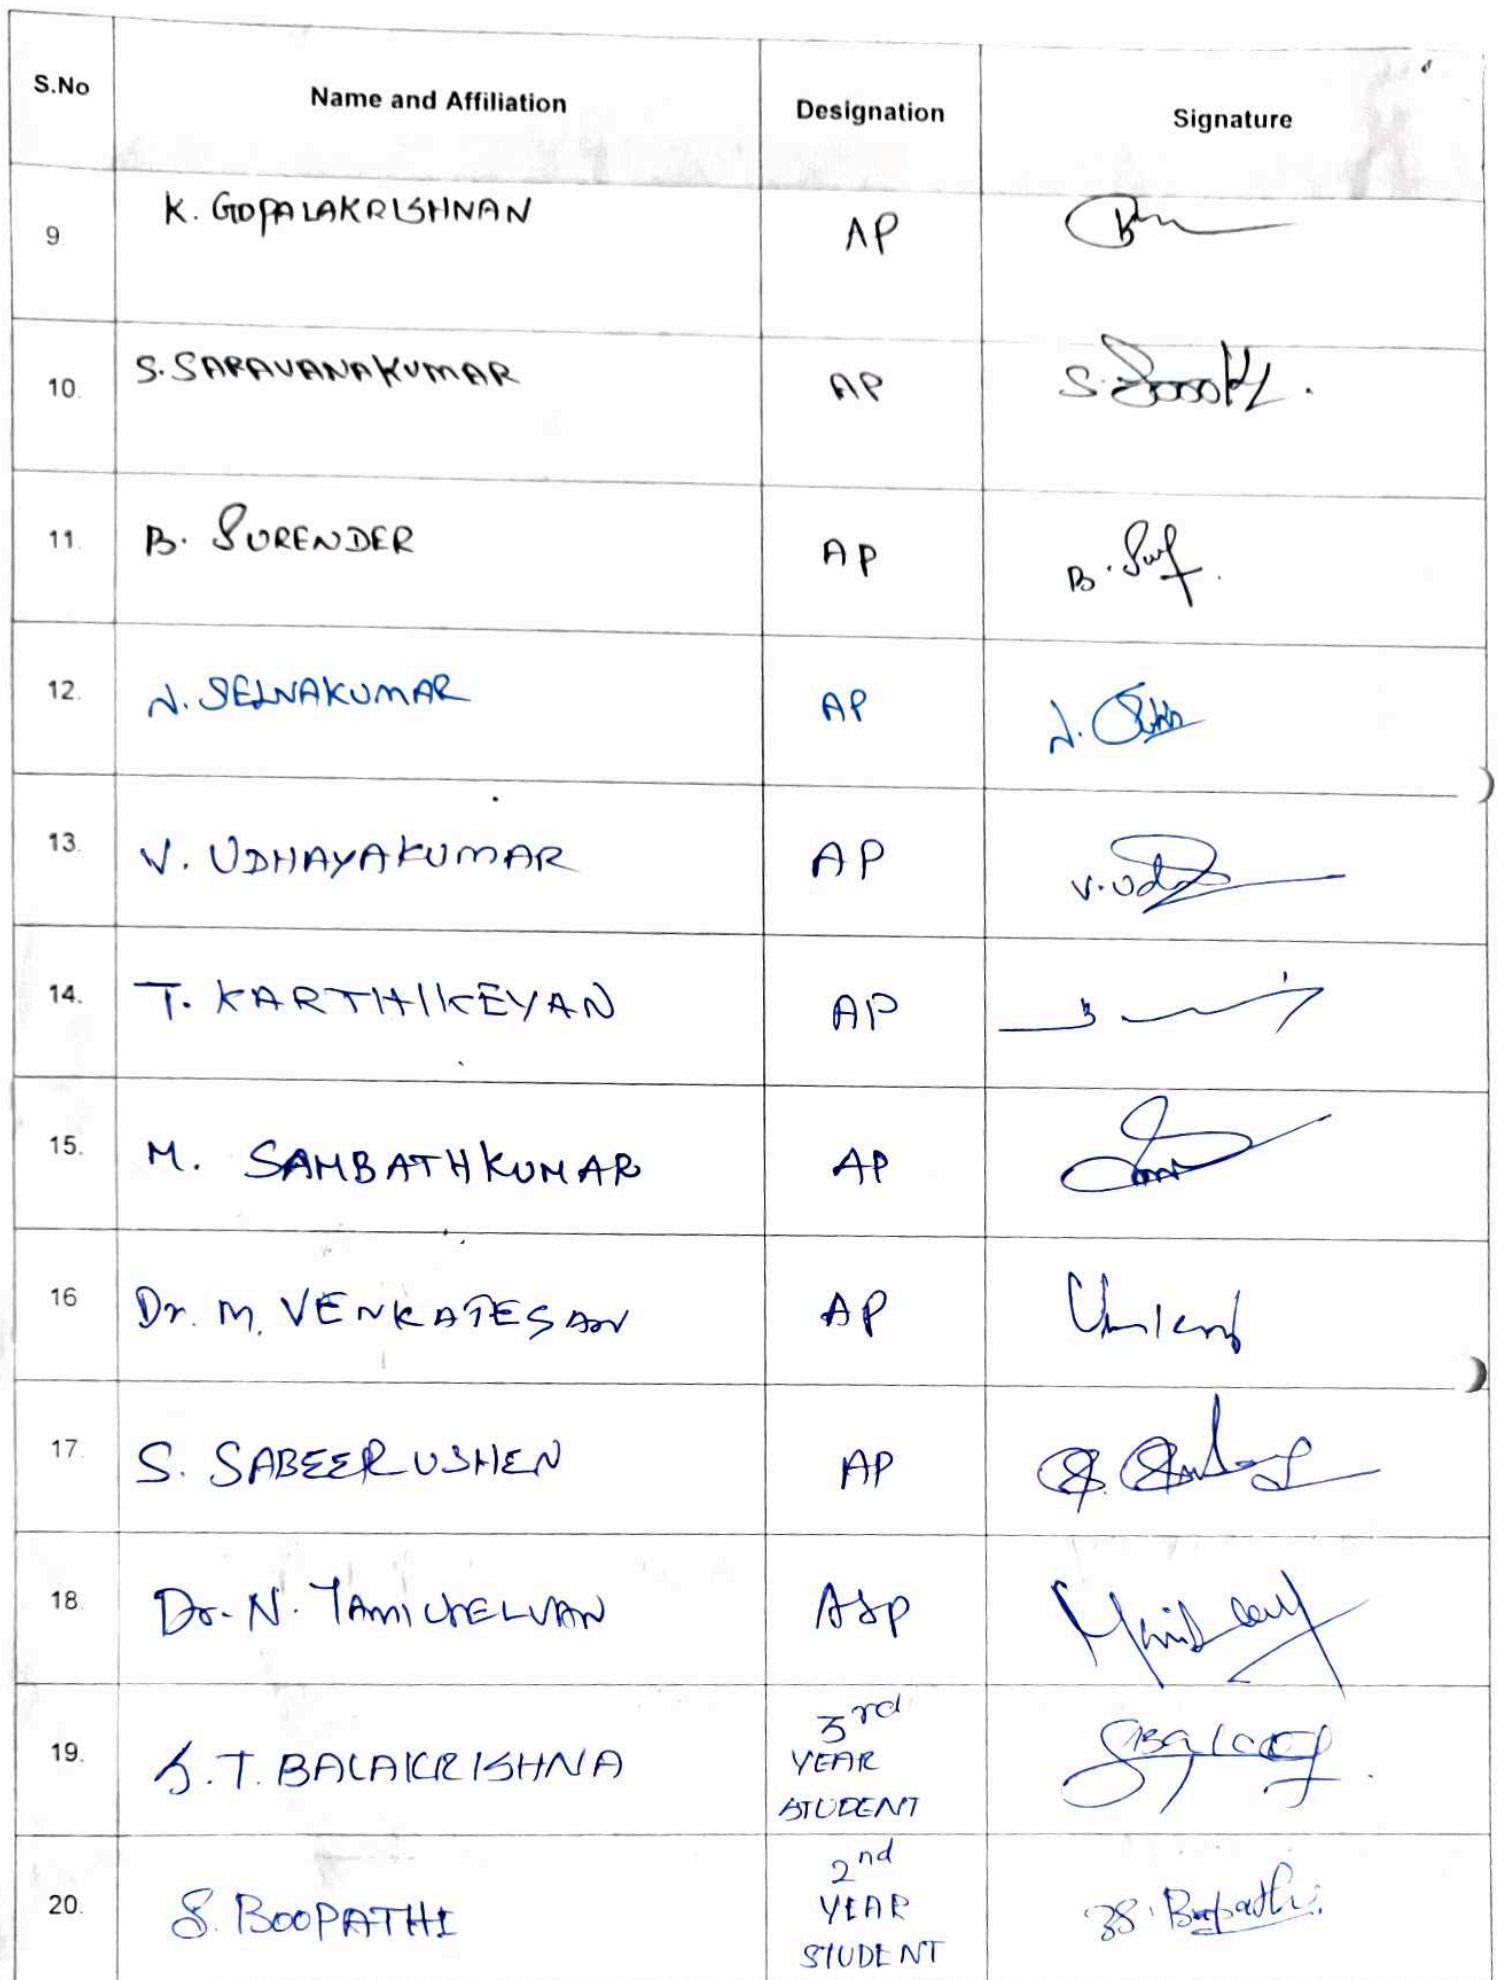 S.No Name and Affiliation Designation Signature
9 K. GOPALAKRISHNAN AP
10. S. SARAVANAKUMAR AP
11. B. SURENDER AP B.
12. N. SELVAKUMAR AP N.
13. V. UDHAYAKUMAR AP V.
14. T. KARTHIKEYAN AP
15. M. SAMBATHKUMAR AP
16 Dr. M. VENKATESAN AP
17. S. SABEERUSHEN AP
18. Dr. N. TAMILSELVAN ASP
3rd
19. S.T. BALAKRISHNA YEAR
STUDENT
2nd
20. S. BOOPATHI YEAR S. Boopathi
STUDENT